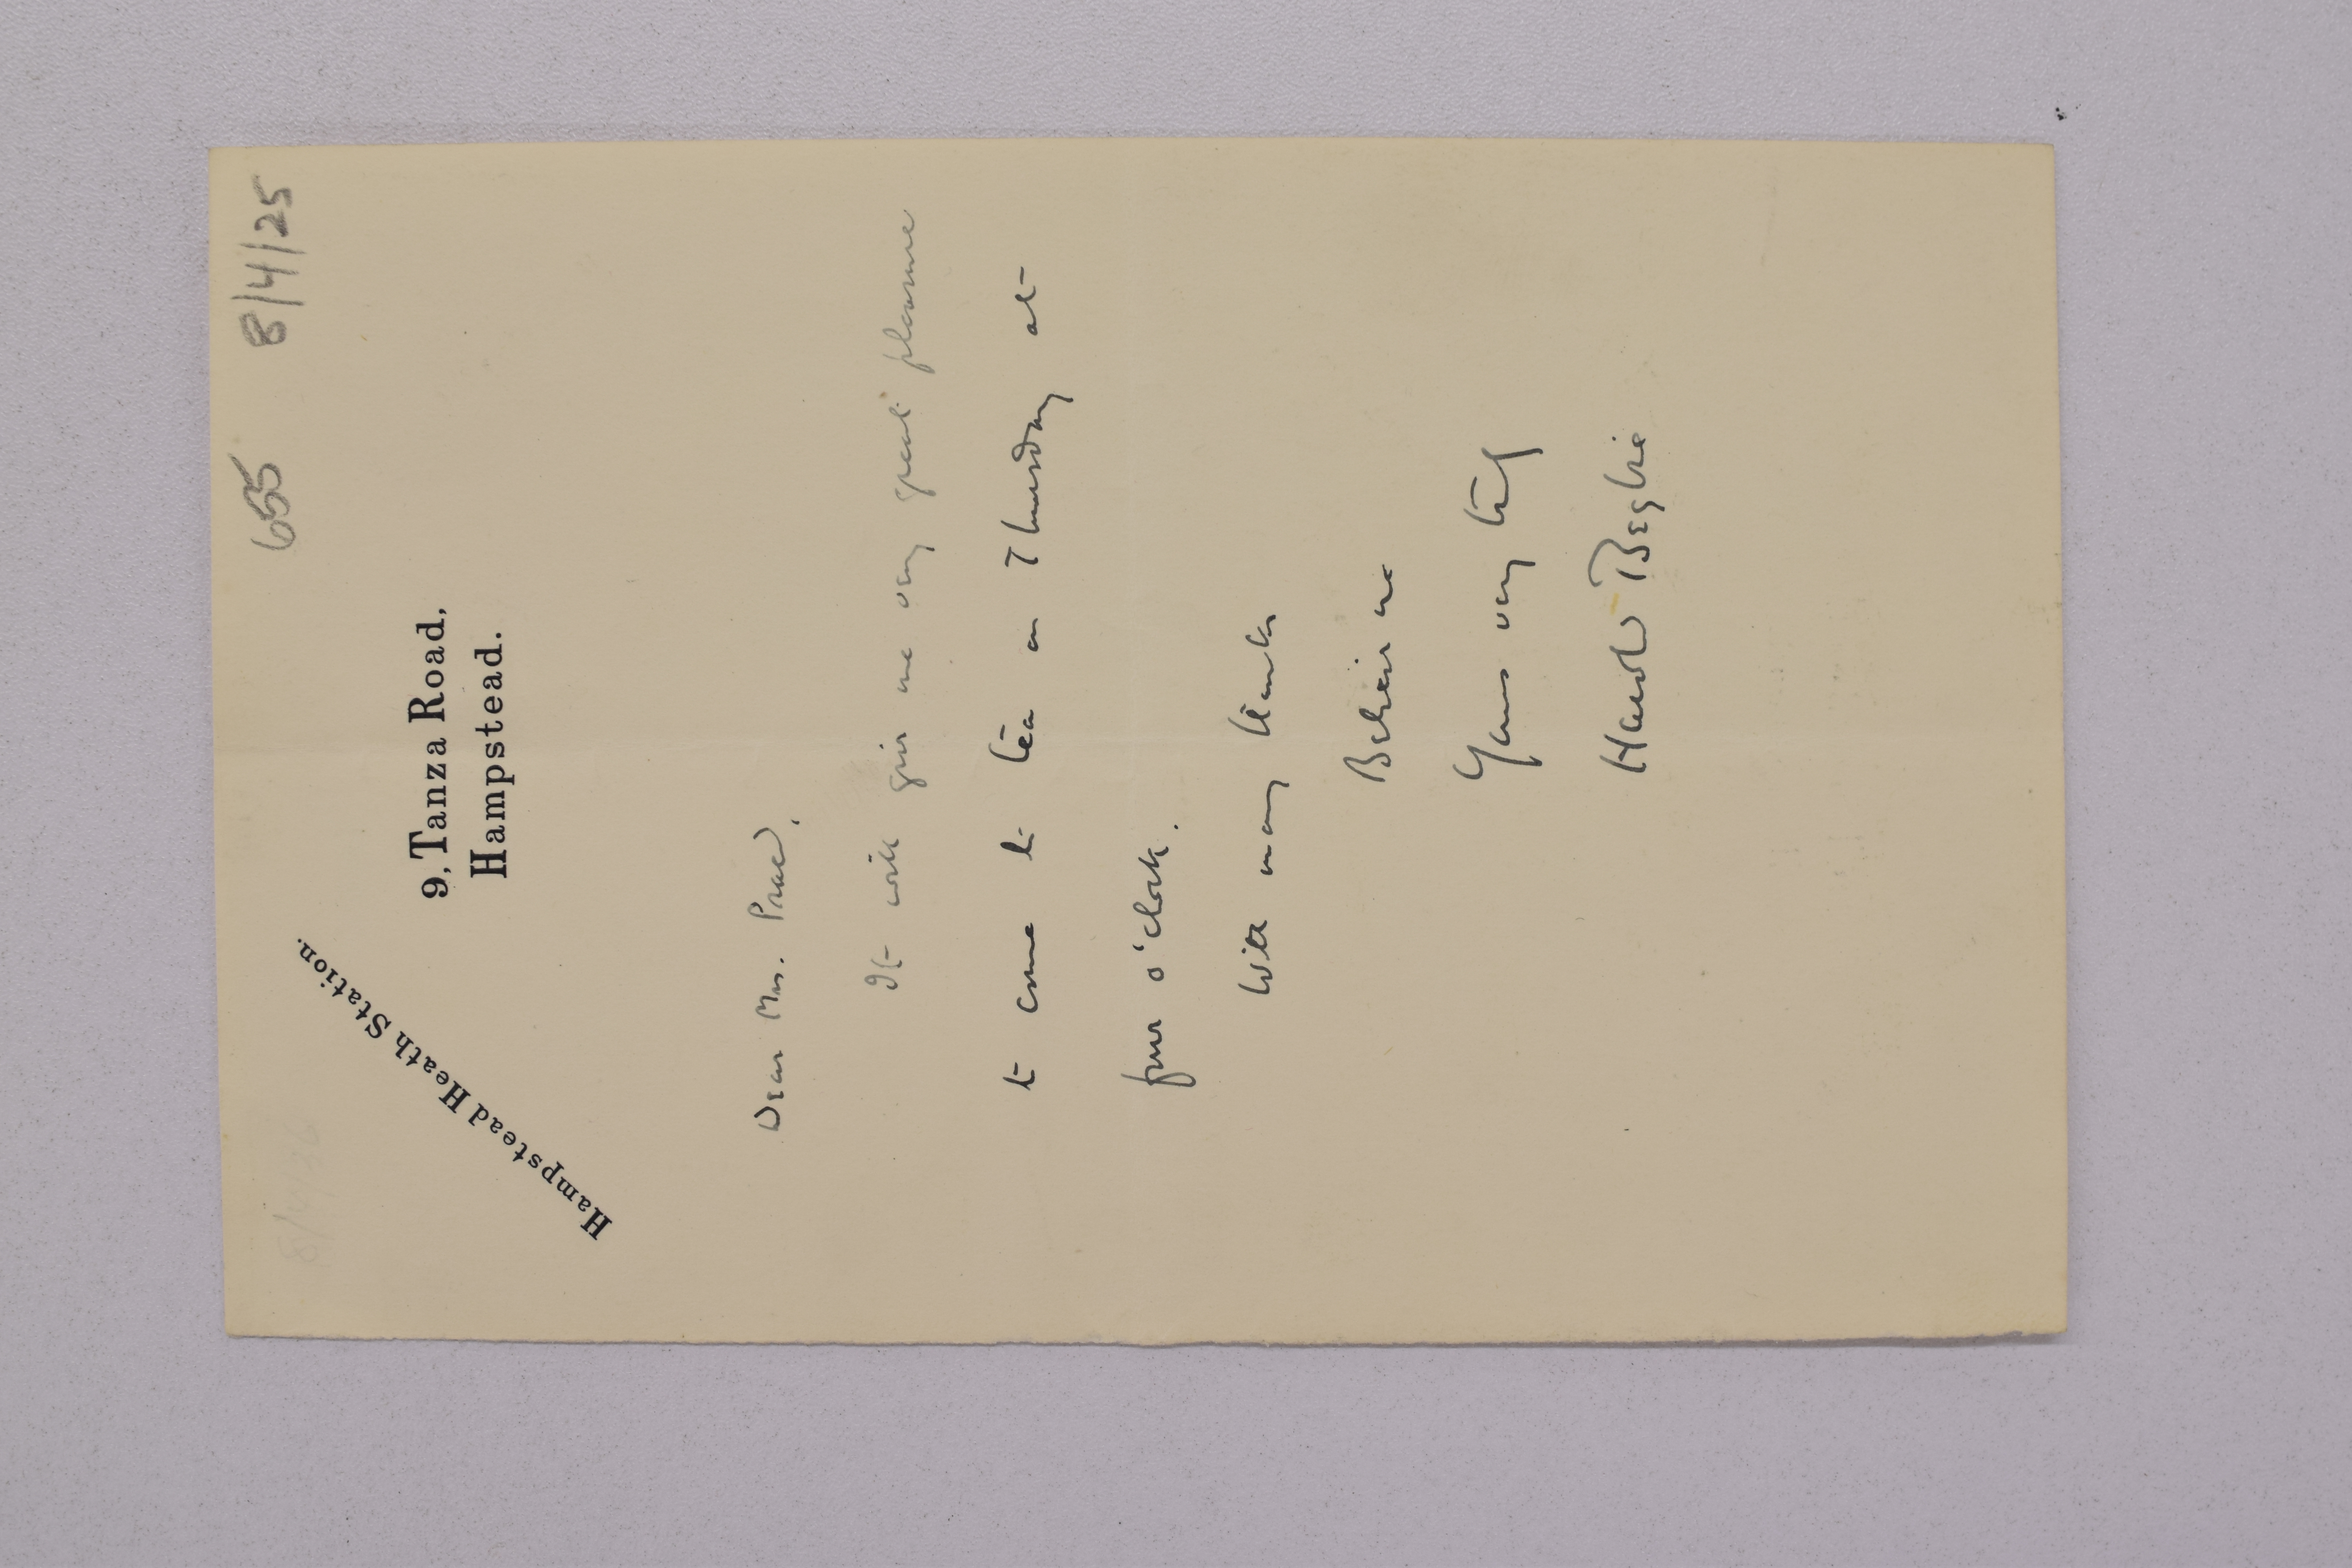 655 8/4/25
Hampstead Heath Station.
9, Tanza Road,
Hampstead.
Dear Mrs.
It will give me very great pleasure
to come to tea on Thursday at
four o'clock.
With many thanks
Believe me
Yours very truly
Harold Begbie